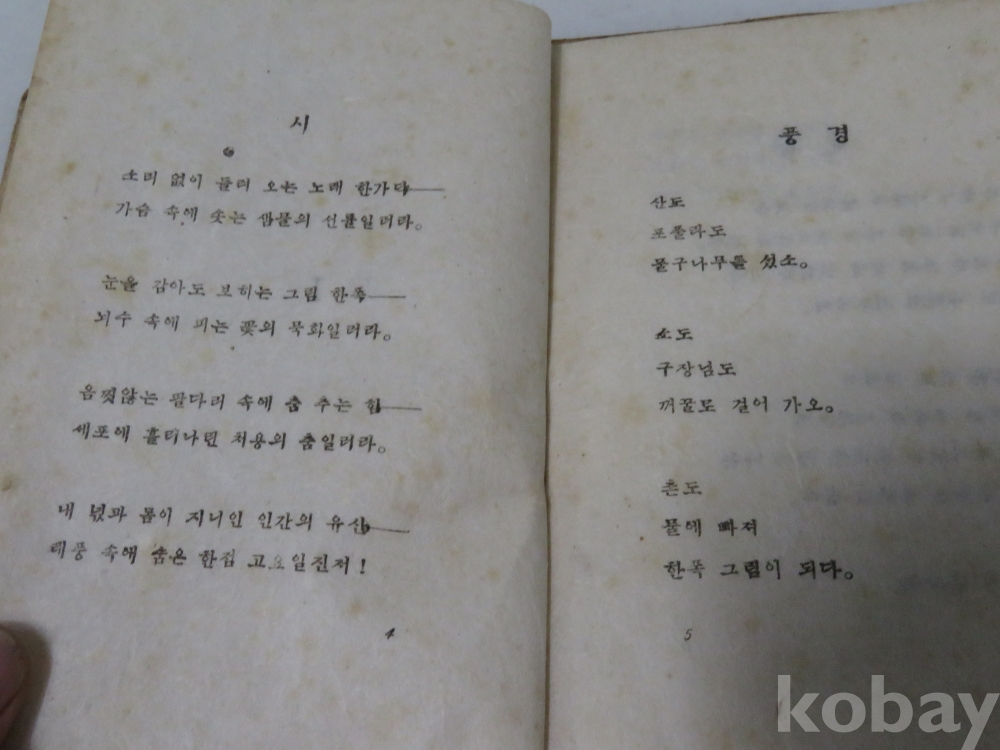 시
소리 없이 들려 오는 노래 한가닥——
가슴 속에 솟는 샘물의 선물일러라。
눈을 감아도 보히는 그림 한폭——
뇌수 속에 피는 꽃의 묵화일러라。
움찟않는 팔다리 속에 춤 추는 힘——
세포에 흘터나린 처용의 춤일러라。
내 넋과 몸이 지니인 인간의 유산——
태풍 속에 숨은 한점 고요일진저!
4
풍경
산도
포풀라도
물구나무를 섰소。
소도
구장님도
꺼꿀로 걸어 가오。
촌도
물에 빠져
한폭 그림이 되다。
5
kobay